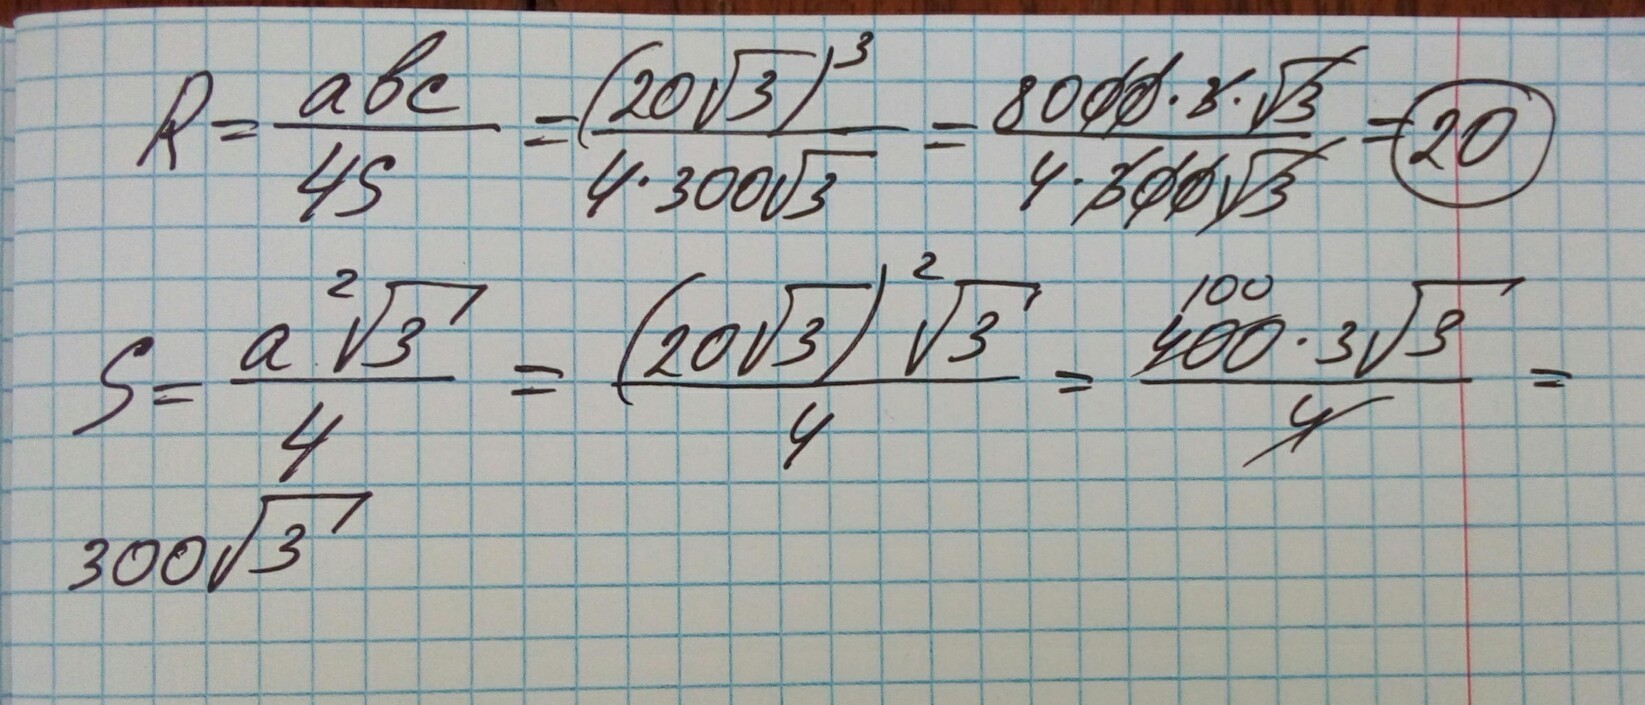 R = abc / 4S = (20√3)³ / 4·300√3 = 8000·3·√3 / 4·300√3 = 20
S = a²√3 / 4 = (20√3)²√3 / 4 = 100 400·3√3 / 4 =
300√3